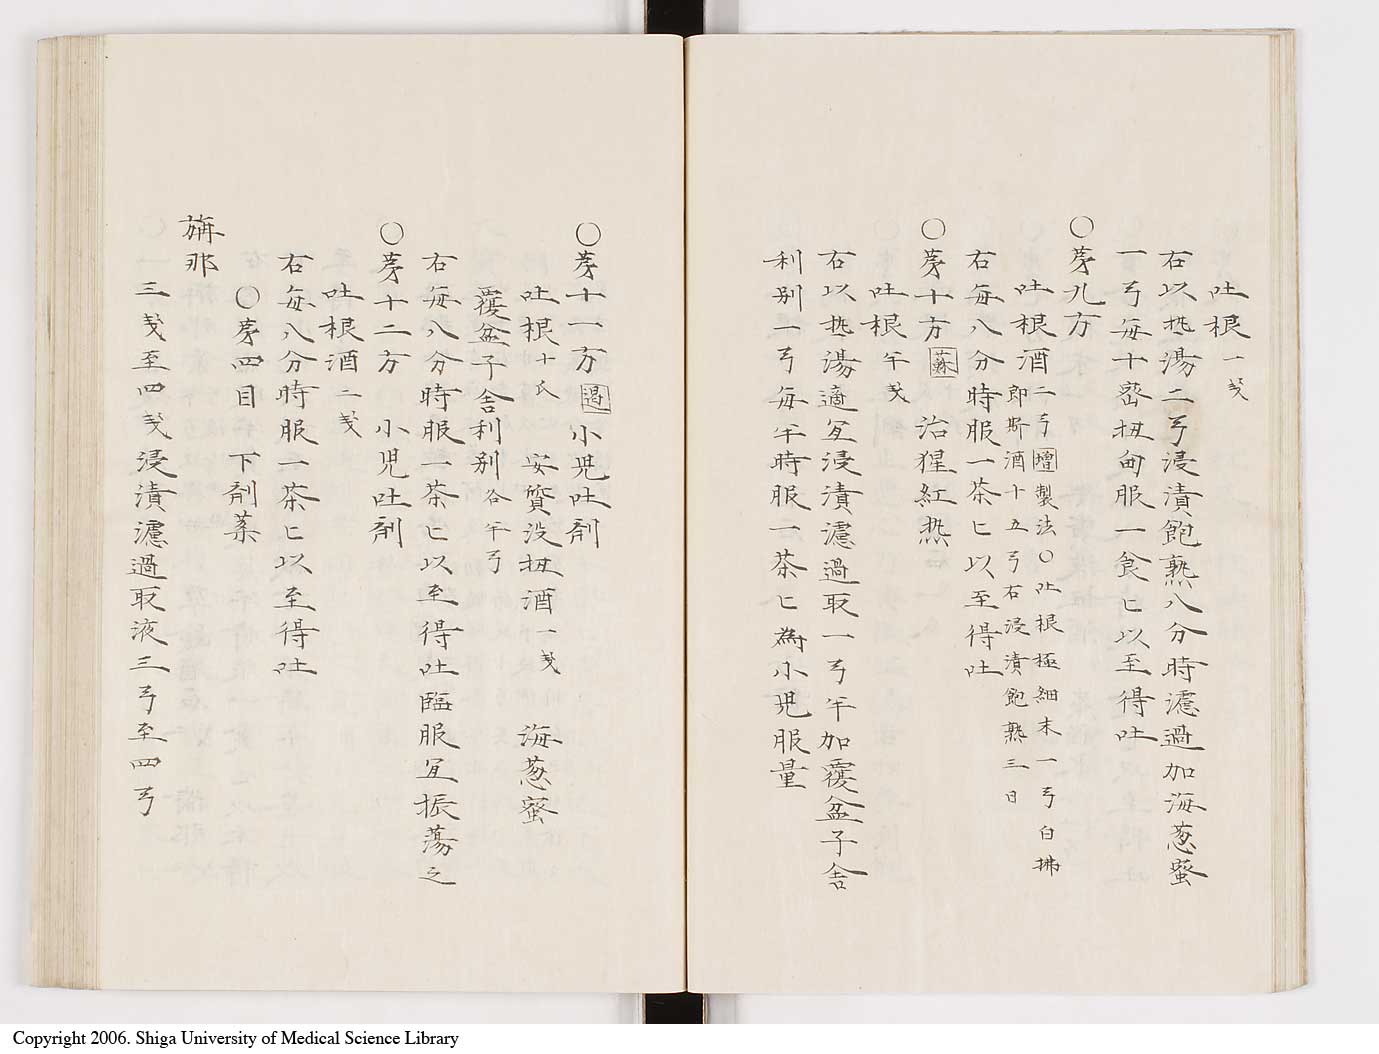 吐根 一戔
右以热湯二弓浸漬飽熟八分時濾過加海葱蜜
一弓每十密扭甸服一食匕以至得吐
〇㐧九方
吐根酒 二弓 壜 製法〇吐根極細末一弓白拂
即斯酒十五弓右浸漬飽熟三日
右每八分時服一茶匕以至得吐
〇㐧十方 蘇 治猩紅热
吐根 午戔
右以热湯適宜浸漬濾過取一弓午加覆盆子舎
利別一弓每午時服一茶匕為小児服量
〇㐧十一方 過 小児吐剤
吐根 十氏 安質没扭酒 一戔 海葱蜜
覆盆子舎利別 各午弓
右每八分時服一茶匕以至得吐臨服宜振蕩之
〇㐧十二方 小児吐剤
吐根酒 二戔
右每八分時服一茶匕以至得吐
〇㐧四目 下剤藥
旃那 三戔至四戔浸漬濾過取液三弓至四弓
Copyright 2006. Shiga University of Medical Science Library